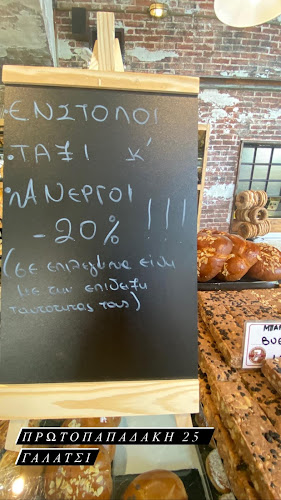 ·ΕΝΣΤΟΛΟΙ
·ΤΑΞΙ Κ'
·ΑΝΕΡΓΟΙ
-20% !!!
(σε επιλεγμένα είδη
με την επίδειξη
ταυτότητας τους)
ΠΡΩΤΟΠΑΠΑΔΑΚΗ 25
ΓΑΛΑΤΣΙ